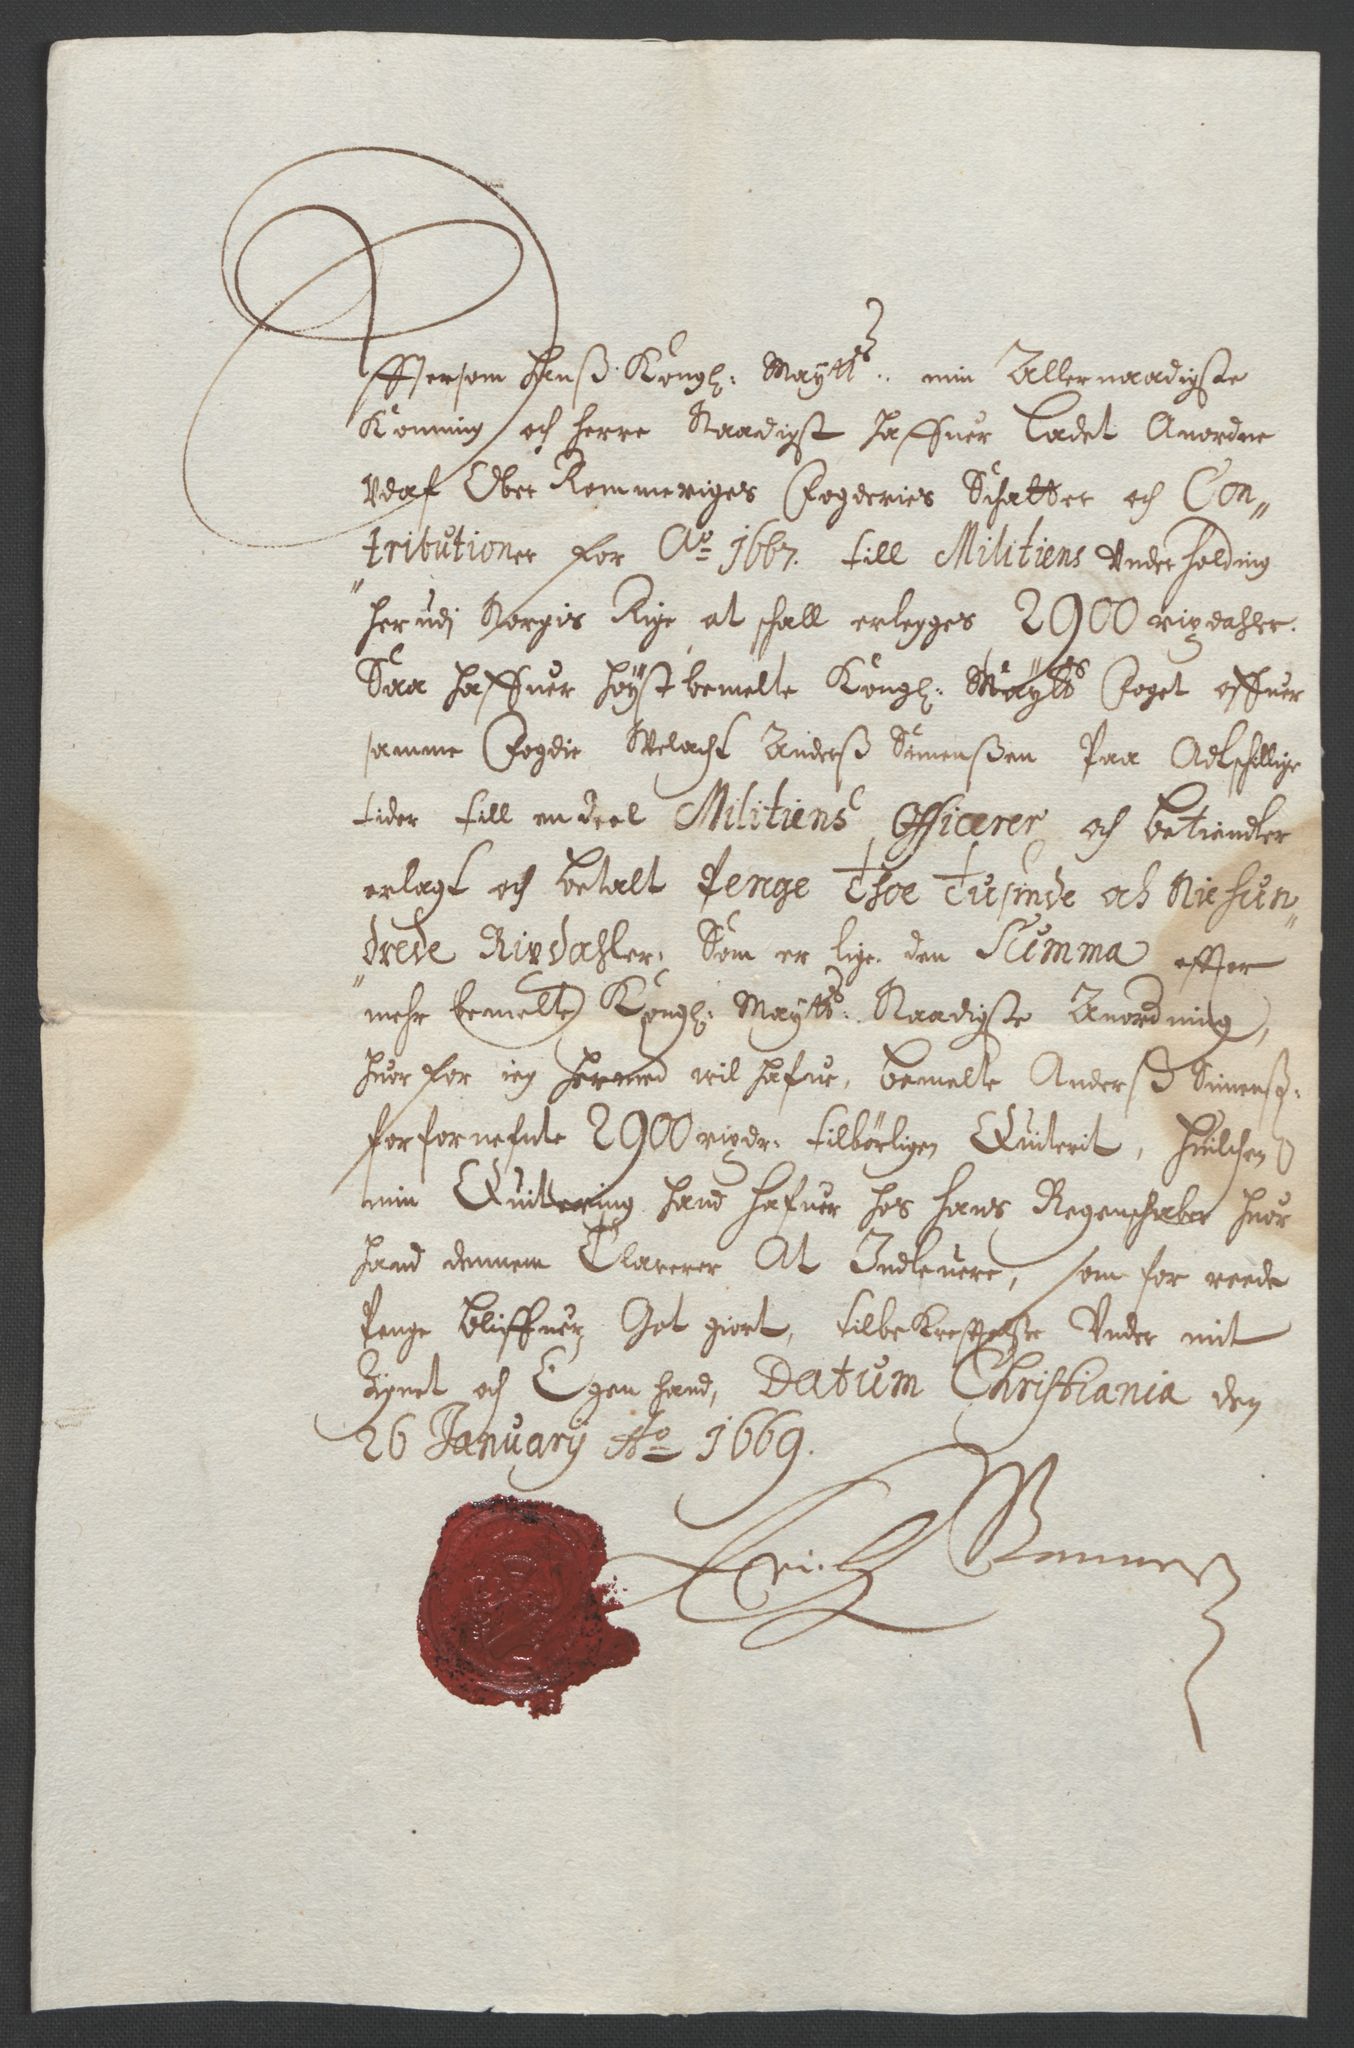 Efftersom Hanß Kongl: Maytts: min Allernaadigste
Konning och Herre Naadigst haffuer Ladet Anordne
Udaf Ober Rommeriges Fogderies Schatter och Con„
„tributioner for Ao 1667. till Militiens Underholding
herudj Norgis Rige, at schall erlegges 2900 rixdahler.
Saa haffuer høyst bemelte Kongl: Maytts Foget offuer
samme Fogdie Welacht Anderß Simenßen Paa Adtschillige
tider till en deel Militiens Officerer och betiendter
erlagt och betalt Penge Thoe Tusinde och Niehun„
„drede Rixdahler. Som er lige den Summa effter
mehr bemelte Kongl: Maytts: Naadigste Anordning,
huor for ieg hermed wil hafue, bemelte Anderß Simenß:
for fornefnte 2900 rixdr: tilbørligen Quiterit, huilchen
min Quittering hand hafuer hos hans Regenschaber huor
hand dennem Clarerer At Indleuere, som for reede
Penge bliffuer Got giort, tilbekrefftelse Under mit
Zignet och Egen hand, Datum Christiania den
26 Januarij Ao 1669.
Erich